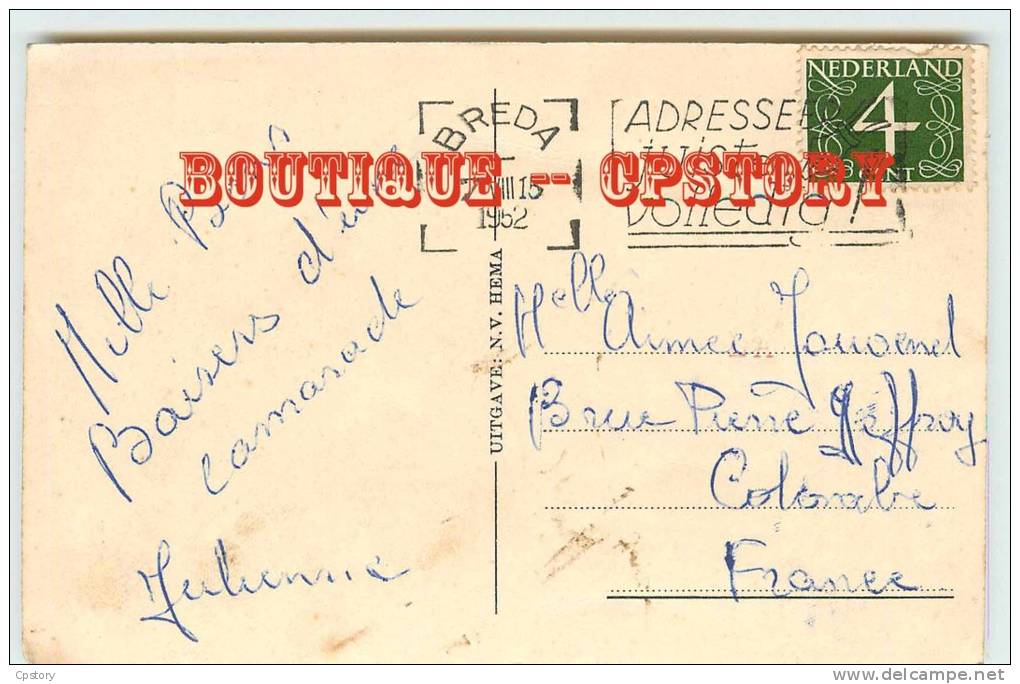 NEDERLAND
4
BREDA
VIII 15
1952
ADRESSEER
volledig!
BOUTIQUE -- CPSTORY
Mille
Baisers d'une
camarade
Julienne
UITGAVE: N.V. HEMA
Melle Aimee Jouvenel
Pierre Geffroy
Colombe
France
Cpstory
www.delcampe.net